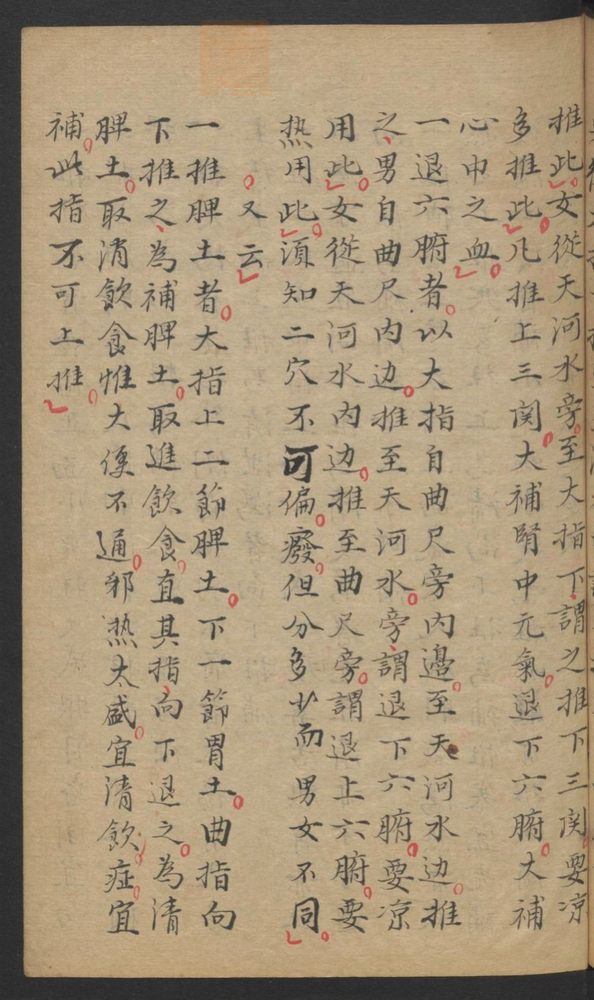 推此女從天河水旁至大指下謂之推下三関要凉
多推此凡推上三関大補腎中元氣退下六腑大補
心中之血
一退六腑者以大指自曲尺旁内邊至天河水边推
之男自曲尺内边推至天河水旁謂退下六腑要凉
用此女従天河水内边推至曲尺旁謂退上六腑要
热用此須知二穴不可偏癈但分多少而男女不同
又云
一推脾土者大指上二節脾土下一節胃土曲指向
下推之為補脾土取進飲食直其指向下退之為清
脾土取消飲食惟大便不通邪熱太盛宜清飲症宜
補此指不可上推